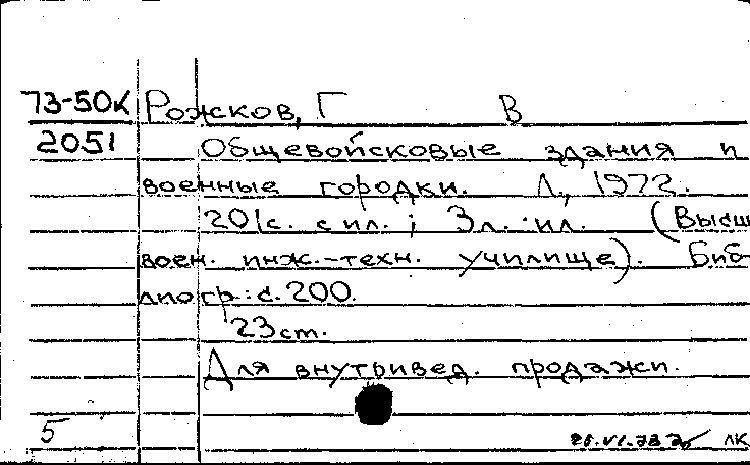 73-50к Рожков, Г В
2051 Общевойсковые здания и
военные городки. Л., 1972.
201с. с ил.; 3л. ил. (Высш
воен. инж.-техн. училище). Биб-
лиогр: с. 200.
23 ст.
Для внутривед. продажи.
5 ЛК